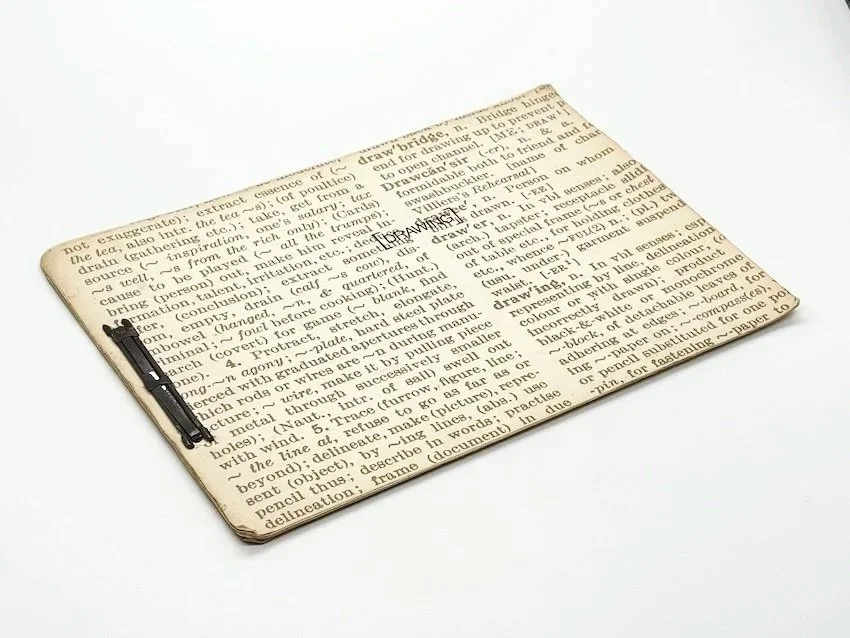 not exaggerate); extract essence of (~
the tea, also intr. the tea ~s); (of poultice)
drain (gathering etc.); take, get from a
source (~ inspiration; one's salary; tax
~s well, ~s from the rich only); (Cards)
cause to be played (~ all the trumps);
bring (person) out, make him reveal
mation, talent, irritation, etc.;
fer, (conclusion); extract something
om, empty, drain (calf ~s cow), dis-
bowel (hanged, ~n, & quartered, of
iminal; ~ fowl before cooking); (Hunt.)
arch (covert) for game (~ blank, find
one). 4. Protract, stretch, elongate,
ong-~n agony; ~-plate, hard steel plate
erced with graduated apertures through
hich rods or wires are ~n during manu-
cture; ~ wire, make it by pulling piece
metal through successively smaller
holes); (Naut., intr. of sail) swell out
with wind. 5. Trace (furrow, figure, line;
~ the line at, refuse to go as far as or
beyond); delineate, make (picture), repre-
sent (object), by ~ing lines, (abs.) use
pencil thus; describe in words; practise
delineation; frame (document) in due
[DRAWING]
draw'bridge, n. Bridge hinged
end for drawing up to prevent p
to open channel. [ME; DRAW¹]
Drawcăn'sir (-er), n. & a.
formidable both to friend and fo
swashbuckler. [name of char
Villiers's Rehearsal]
n. Person on whom
drawn. [-EE]
draw'er, n. In vbl senses; also
(arch.) tapster; receptacle slid
out of special frame (~s or chest
of table etc., for holding clothes
etc., whence ~FUL(2) n.; (pl.) two
(usu. under-) garment suspend
waist. [-ER¹]
draw'ing, n. In vbl senses; esp
representing by line, delineation
colour or with single colour,
incorrectly drawn); product
black-&-white or monochrome
~-block, of detachable leaves of
adhering at edges; ~-board, for
ing ~-paper on; ~-compass(es),
or pencil substituted for one po
pin, for fastening ~-paper to